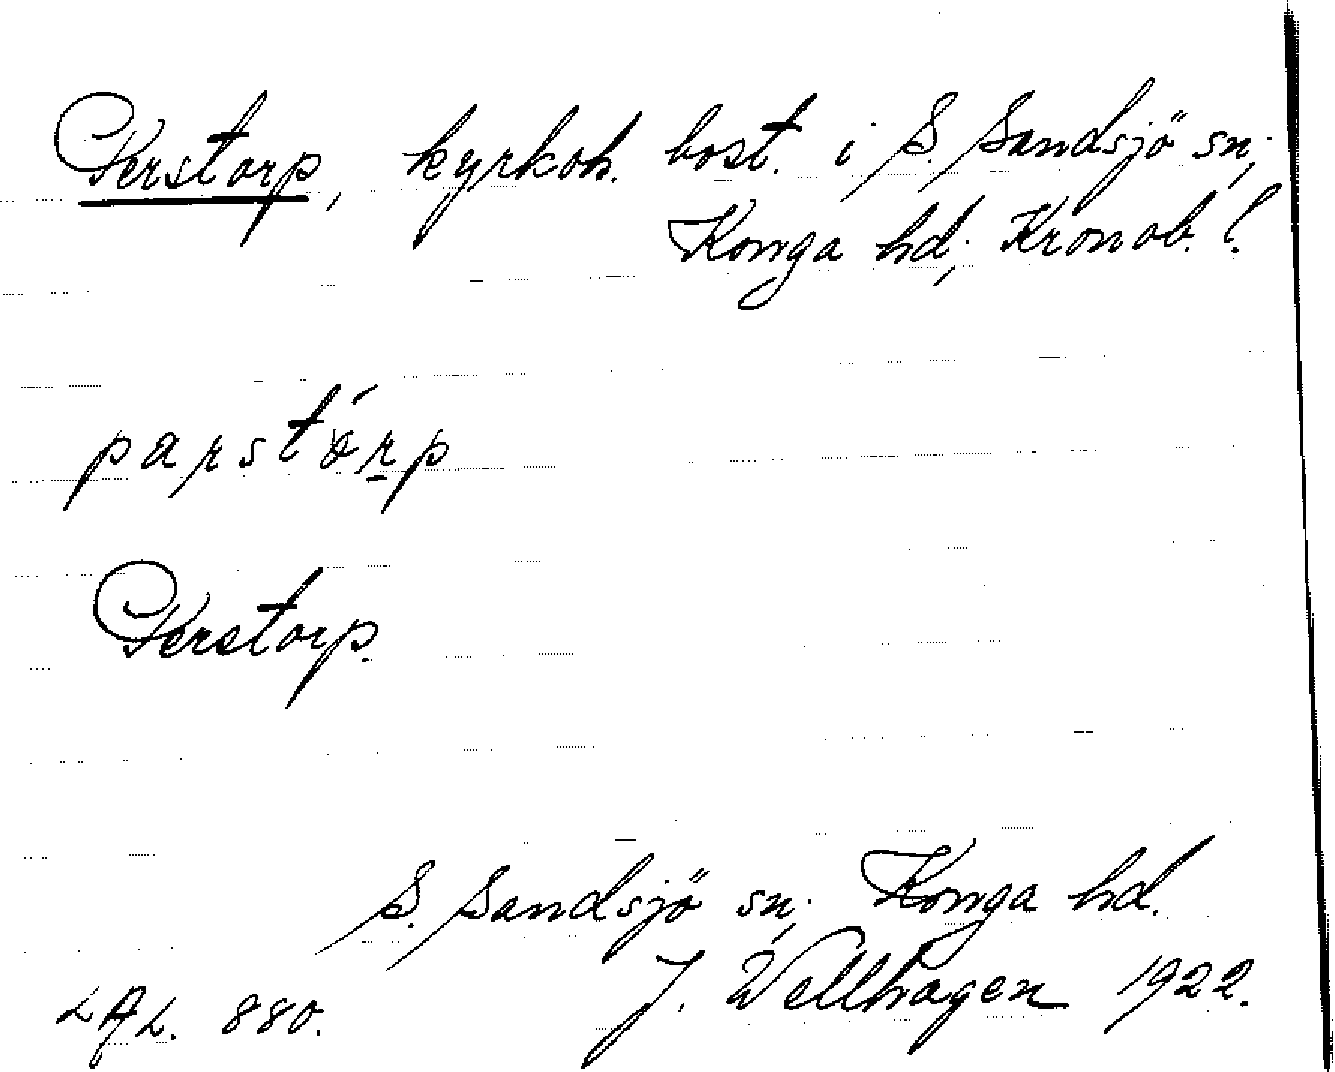 Perstorp, kyrkoh. bost. i S. Sandsjö sn.,
Konga hd., Kronob. l.
parstórp
Perstorp.
S. Sandsjö sn., Konga hd.
LAL. 880. J. Wellhagen 1922.